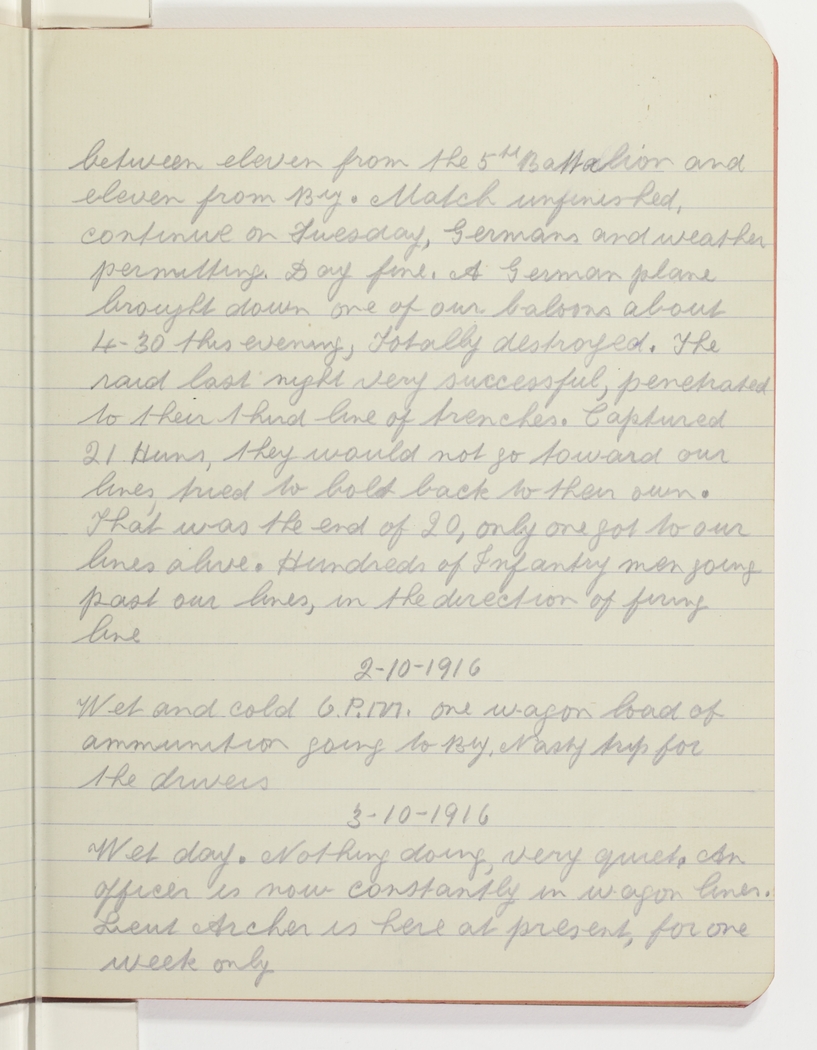 between eleven from the 5th Battalion and
eleven from Bty. Match unfinished,
continue on Tuesday, Germans and weather
permitting. Day fine. A German plane
brought down one of our baloons about
4-30 this evening, Totally destroyed. The
raid last night very successful, penetrated
to their third line of trenches. Captured
21 Huns, they would not go toward our
lines, tried to bolt back to their own.
That was the end of 20, only one got to our
lines alive. Hundreds of Infantry men going
past our lines, in the direction of firing
line
2-10-1916
Wet and cold 6.P.M. one wagon load of
ammunition going to Bty. Nasty trip for
the drivers
3-10-1916
Wet day. Nothing doing, very quiet. An
officer is now constantly in wagon lines.
Lieut Archer is here at present, for one
week only